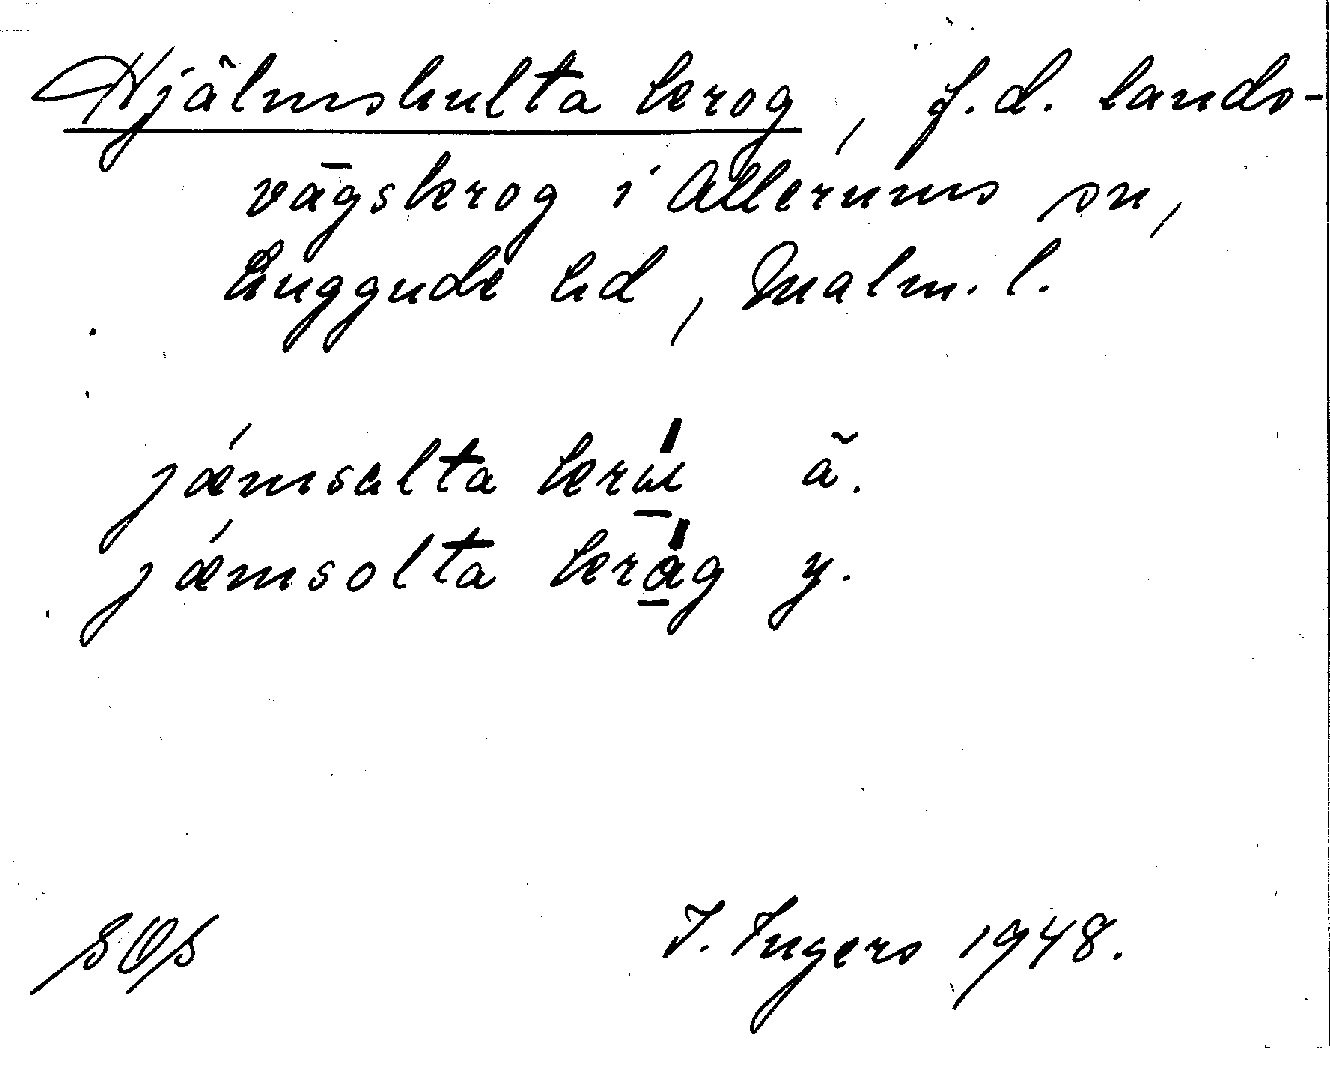 Hjälmshulta krog, f.d. lands-
vägskrog i Allerums sn,
Luggude hd, Malm. l.
jǽmsalta krɯ́ ä.
jǽmsolta krág y.
SOS
I. Ingers 1948.